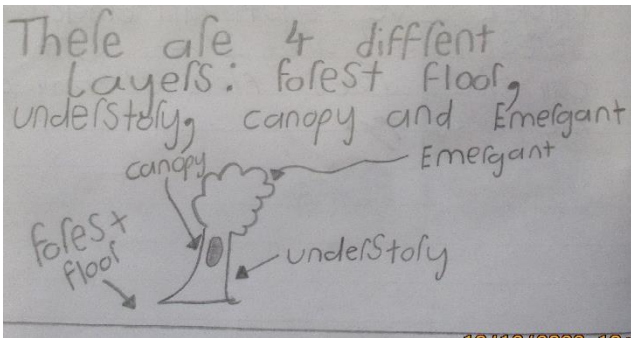 There are 4 diffrent
Layers: forest floor,
understory, canopy and Emergant
canopy
Emergant
forest
floor
understory